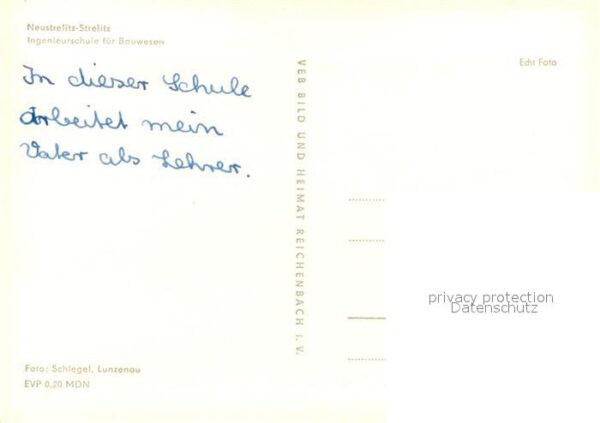 Neustrelitz-Strelitz
Ingenieurschule für Bauwesen
In dieser Schule
arbeitet mein
Vater als Lehrer.
VEB BILD UND HEIMAT REICHENBACH i. V.
Echt Foto
privacy protection
Datenschutz
Foto: Schlegel, Lunzenau
EVP 0,20 MDN